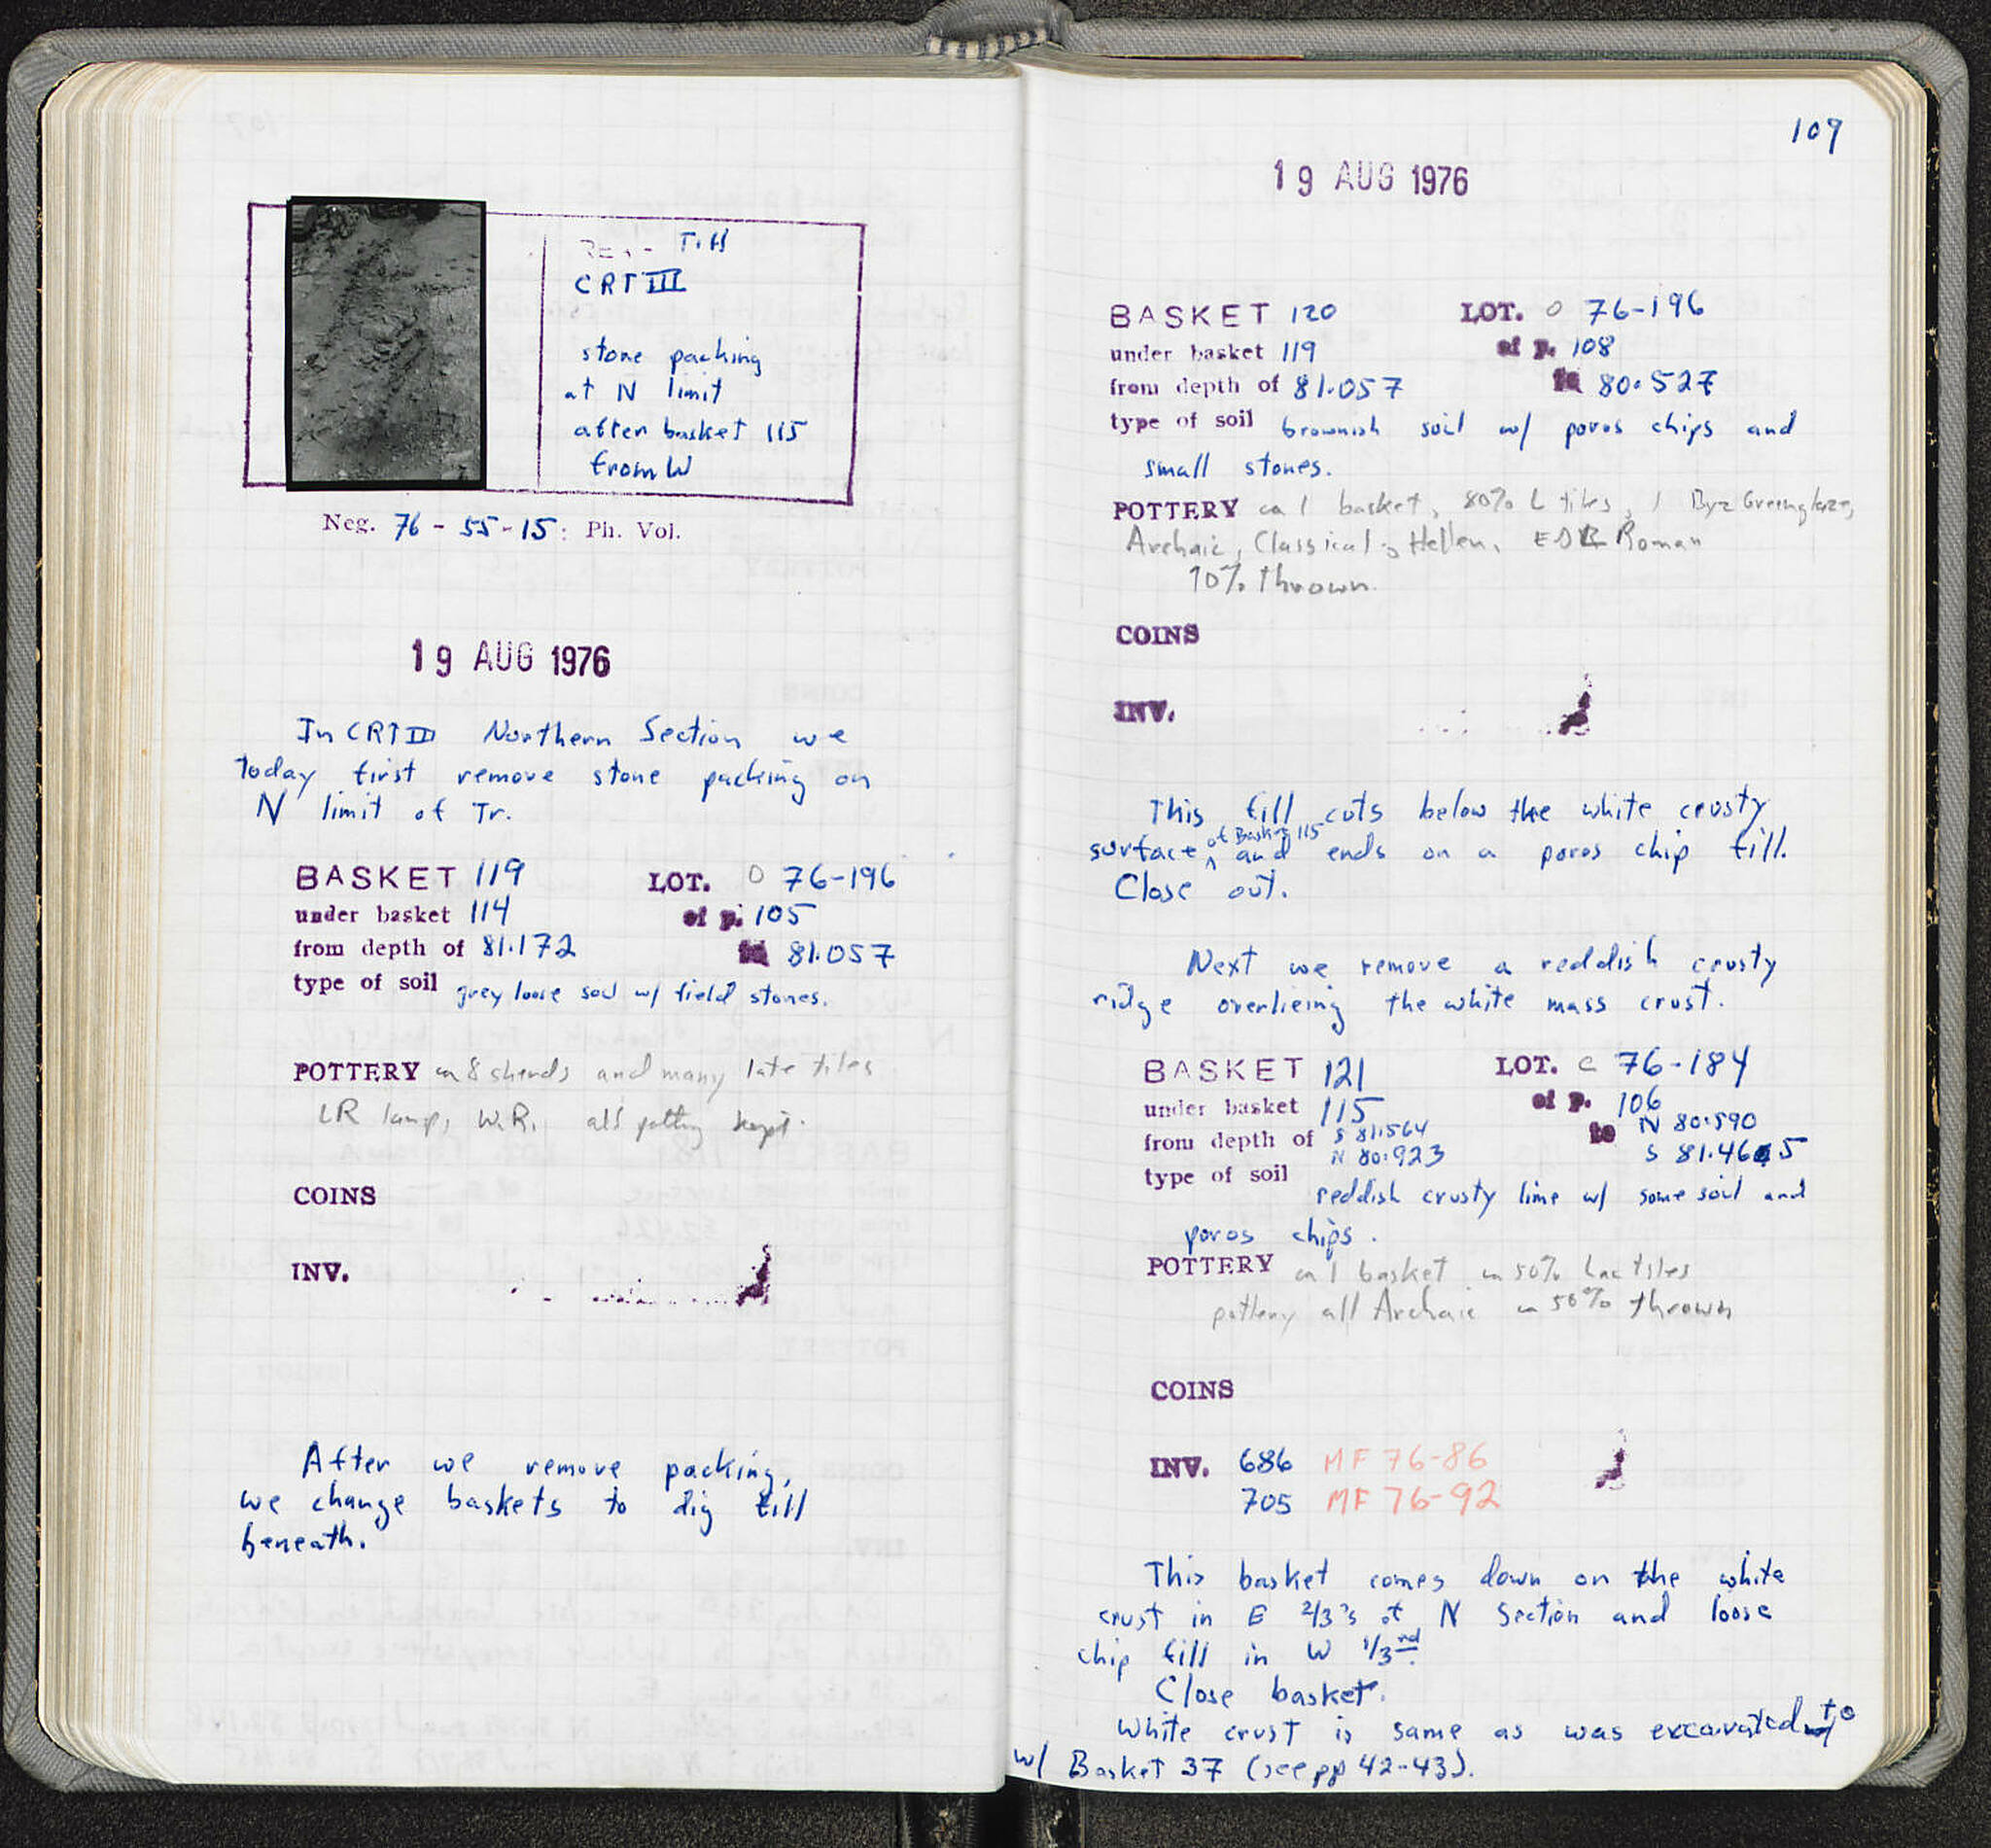 T.H
CRT III
stone packing
at N limit
after basket 115
from W
Neg. 76 - 55-15: Ph. Vol.
19 AUG 1976
In CRT III Northern Section we
today first remove stone packing on
N limit of Tr.
BASKET 119 LOT. 76-196
under basket 114 of p. 105
from depth of 81.172 to 81.057
type of soil grey loose soil w/ field stones.
POTTERY ca 8 sherds and many late tiles
LR lamp, W.R. all pottery kept.
COINS
INV.
After we remove packing,
we change baskets to dig fill
beneath.
109
19 AUG 1976
BASKET 120 LOT. 76-196
under basket 119 of p. 108
from depth of 81.057 to 80.527
type of soil brownish soil w/ poros chips and
small stones.
POTTERY ca 1 basket, 80% L tiles, 1 Byz Greenglaze,
Archaic, Classical, Hellen, Roman
90% thrown.
COINS
INV.
This fill cuts below the white crusty
surface of Basket 115 and ends on a poros chip fill.
Close out.
Next we remove a reddish crusty
ridge overlieing the white mass crust.
BASKET 121 LOT. C 76-184
under basket 115 of p. 106
from depth of S 81.564 to N 80.590
N 80.923 S 81.465
type of soil reddish crusty lime w/ some soil and
poros chips.
POTTERY ca 1 basket ca 50% Lac tiles
pottery all Archaic ca 50% thrown
COINS
INV. 686 MF 76-86
705 MF 76-92
This basket comes down on the white
crust in E 2/3's of N Section and loose
chip fill in W 1/3rd.
Close basket.
White crust is same as was excavated to
w/ Basket 37 (see pp 42-43).